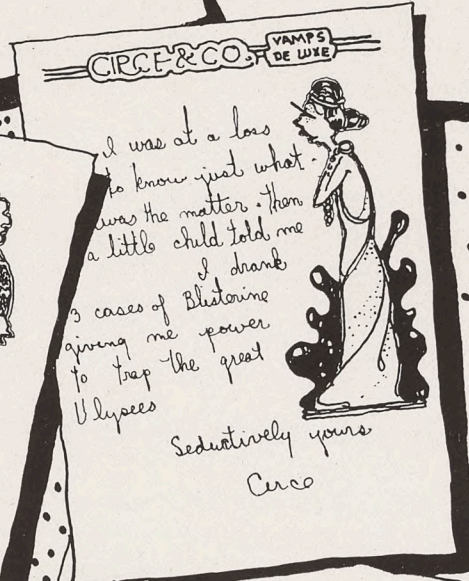 CIRCE & CO. VAMPS
DE LUXE
I was at a loss
to know just what
was the matter. Then
a little child told me
I drank
3 cases of Blisterine
giving me power
to trap the great
Ulysees
Seductively yours
Circe